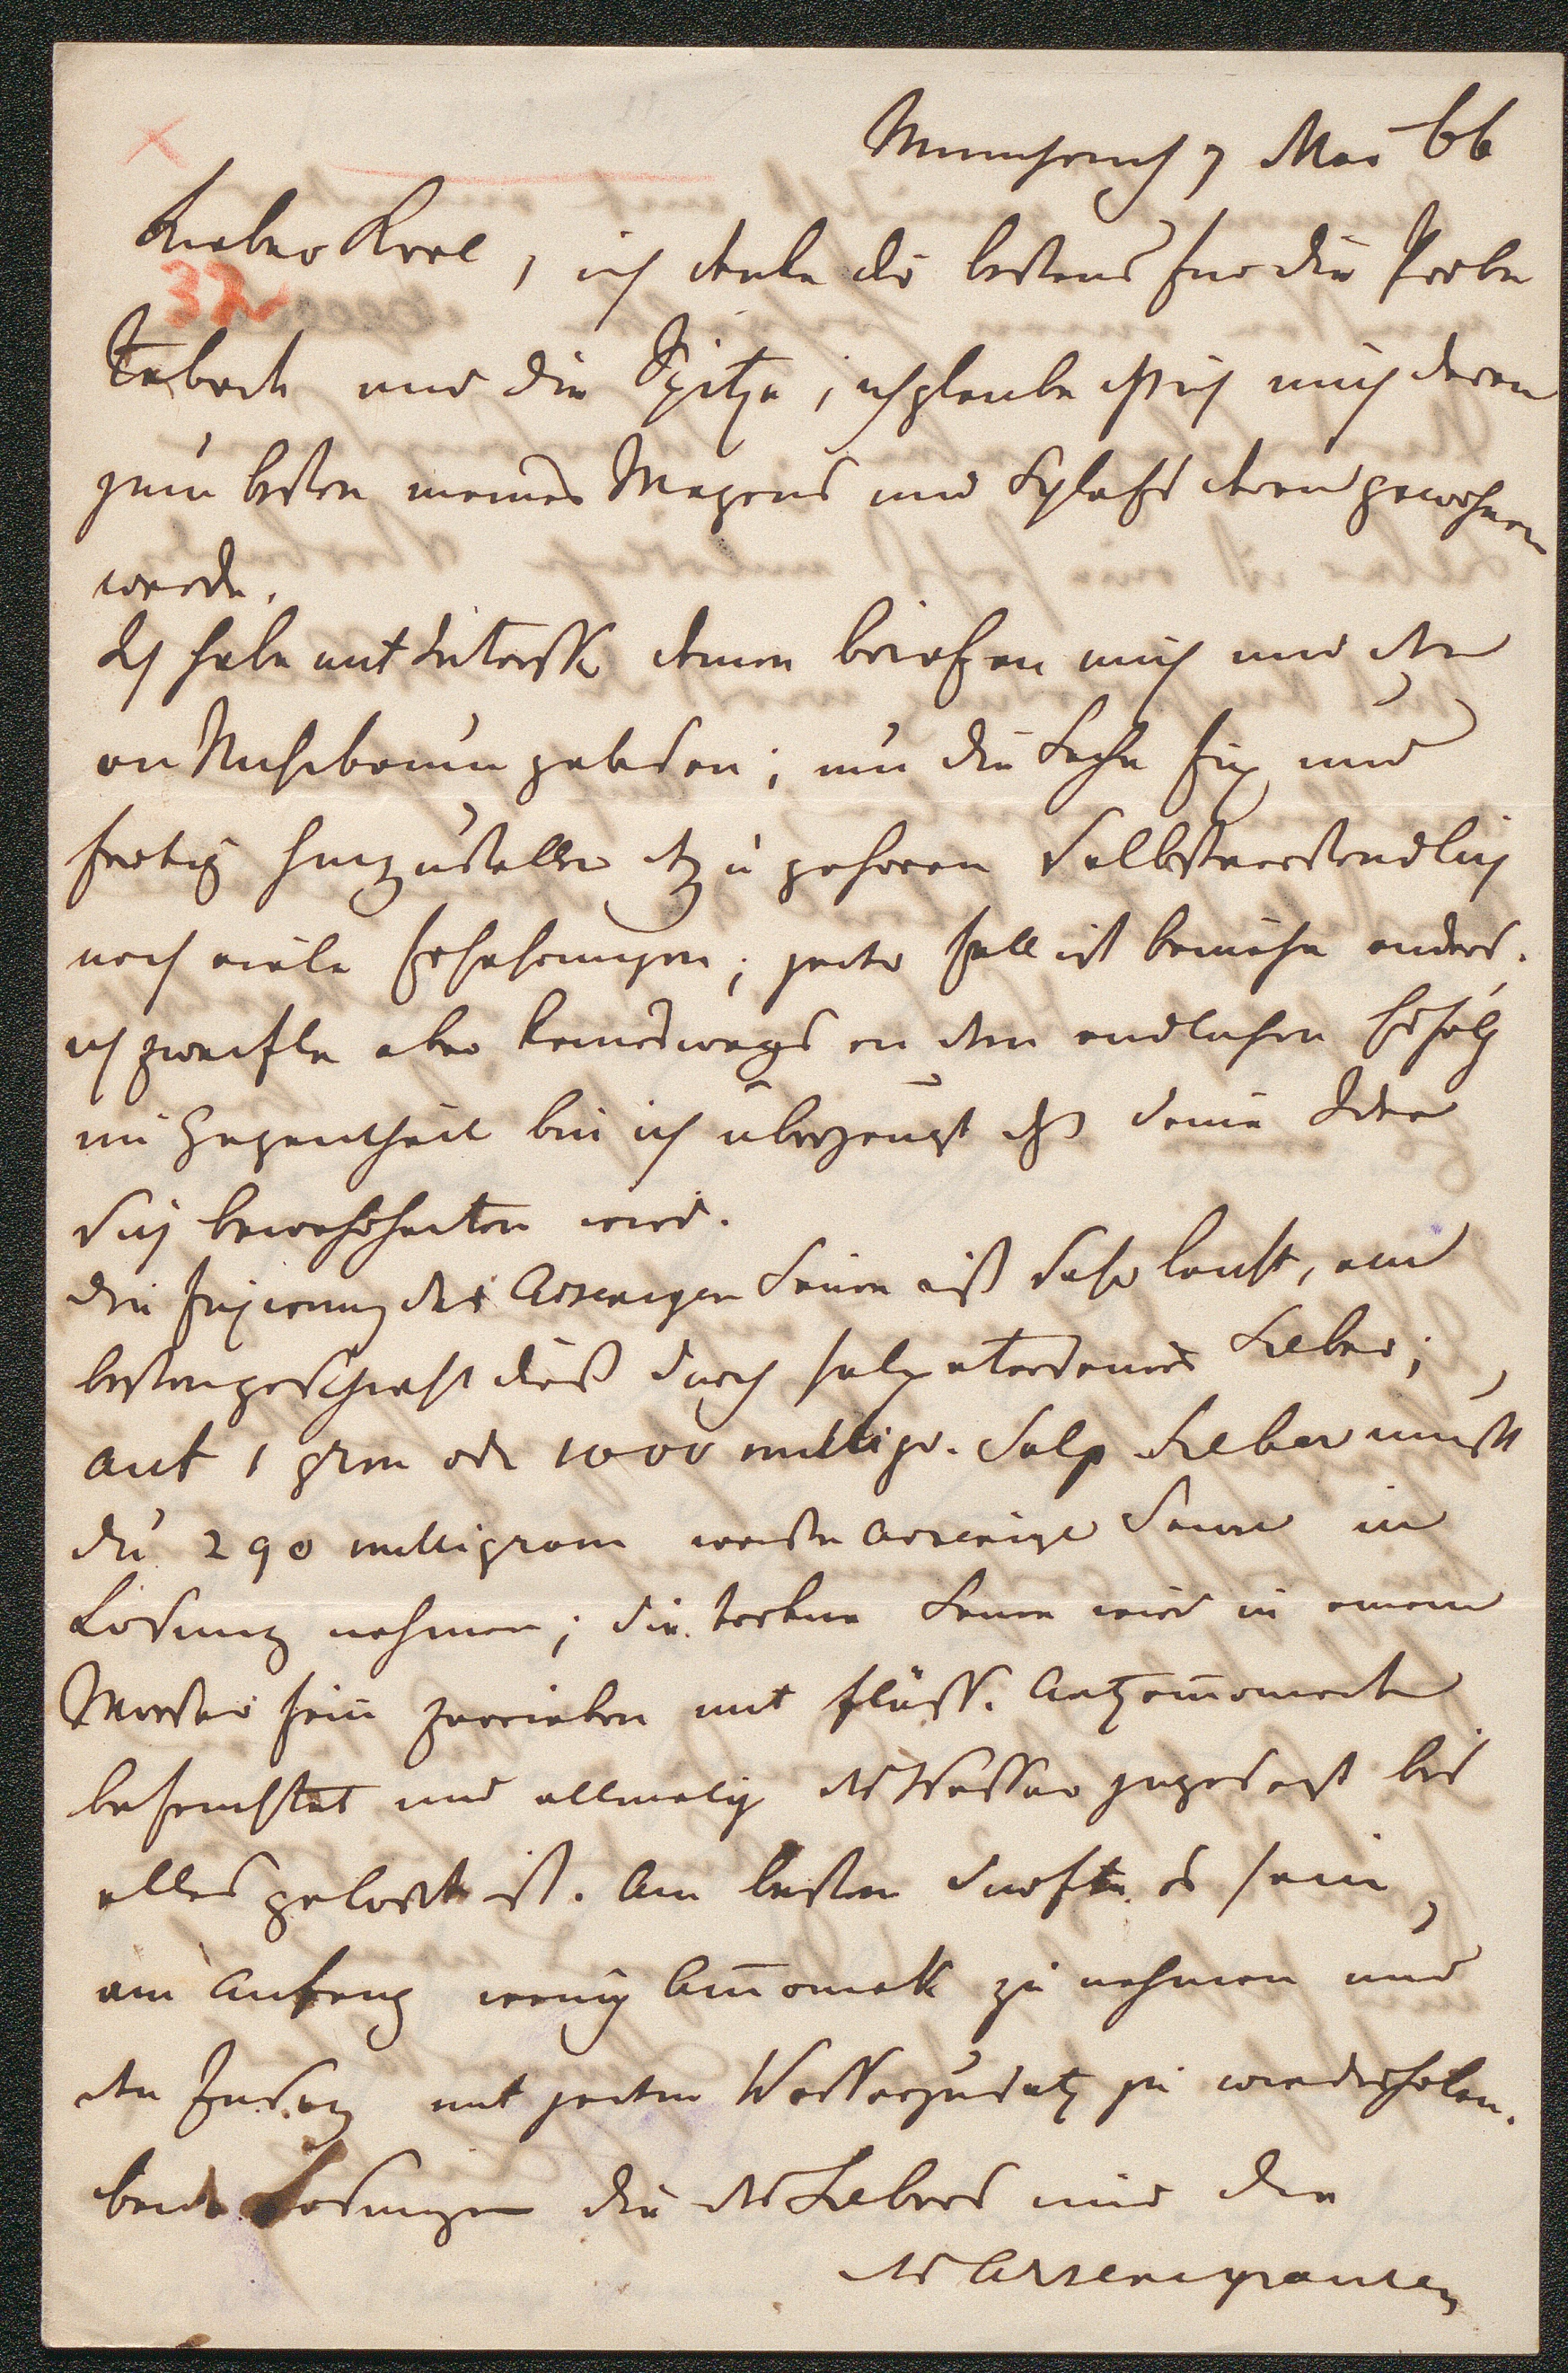 Muenchen 7 Mai 66
32
Lieber Karl, ich danke dir bestens für die Probe
Taback und die Spitze, ich glaube dß ich mich daran
zum besten meines Magens und Schlafs daran gewöhnen
werde.
Ich habe mit Interesse deinen brief an mich und den
an Nussbaum gelesen; um die Sache fix und
fertig hinzustellen dazu gehören selbstverständlich
noch viele Erfahrungen; jeder Fall ist beinahe anders.
ich zweifle aber keineswegs an dem endlichen Erfolg
im Gegentheil bin ich überzeugt dß deine Idee
sich bewahrheiten wird.
die Fixierung der Arsenigen Säure ist sehr leicht, am
besten geschieht dieß durch salpetersaures Silber;
auf 1 grm oder 1000 milligr. Salp Silber mußt
du 290 milligram weiße Arsenige Säure in
Lösung nehmen; die trockne Säure wird in einem
Mörser fein zerrieben mit flüss. Aetzamoniak
befeuchtet und allmälig das Wasser zugesetzt bis
alles gelöst ist. Am besten dürfte es sein,
am Anfang wenig Amoniak zu nehmen und
den Zusatz mit jedem Wasserzusatz zu wiederholen.
beide Lösungen die des Silbers und die
der Arsenigsauren